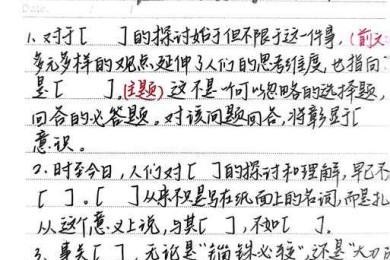 Date.
1、对于[ ]的探讨始于但不限于这一件事,(前文
多元多样的观点延伸了人们的思考维度,也指向
是[ ],(主题)这不是一个可以忽略的选择题,
回答的必答题。对该问题回答,将彰显于[
意识。
2、时至今日,人们对[ ]的探讨和理解,早已不
[ ]。[ ]从来不是写在纸面上的名词,而是扎
从这个意义上说,与其[ ],不如[ ]。
3、事关[ ],无论是"锱铢必较",还是"大刀